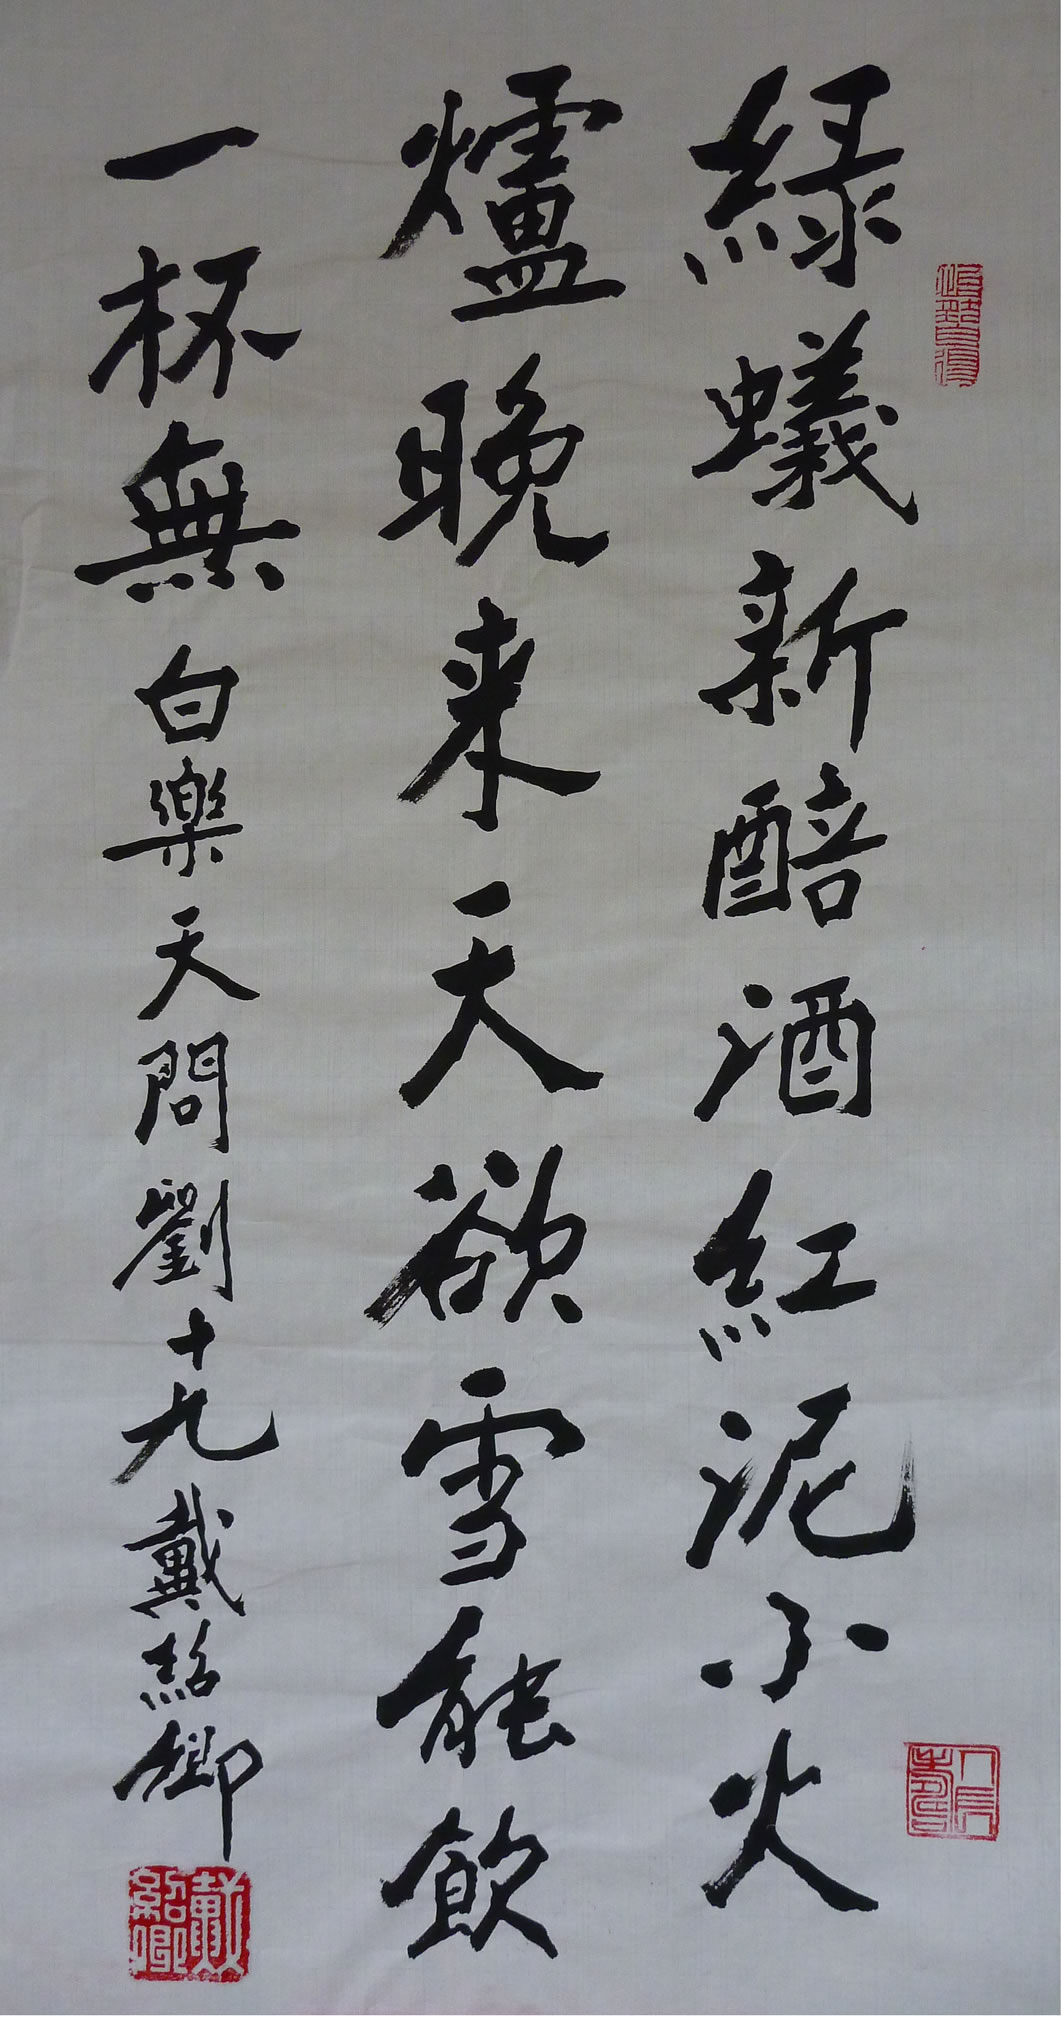 綠蟻新醅酒紅泥小火
爐晚来天欲雪能飲
一杯無 白樂天問劉十九 戴紹卿
戴紹卿